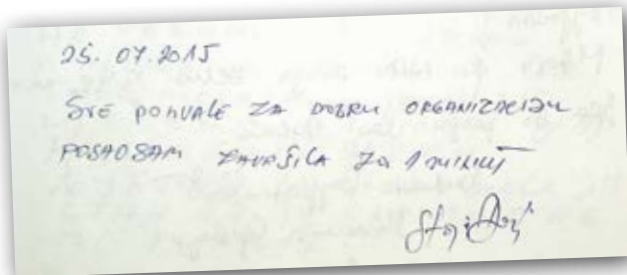 25. 07. 2015
SVE POHVALE ZA DOBRU ORGANIZACIJU
POSAO SAM ZAVRŠILA ZA 1 MINUT